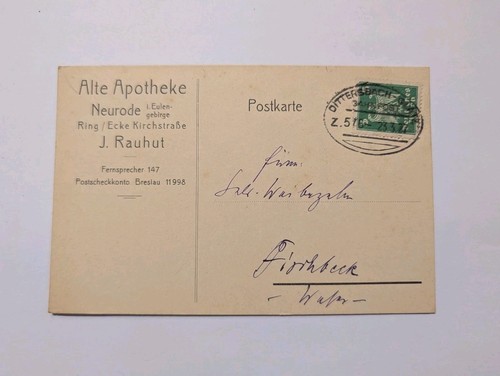 Alte Apotheke
Neurode i. Eulen-
gebirge
Ring / Ecke Kirchstraße
J. Rauhut
Fernsprecher 147
Postscheckkonto Breslau 11998
Postkarte
DITTERSBACH
Z. 57
Firma:
Gebr. Waibezahn
Fischbeck
- Weser -